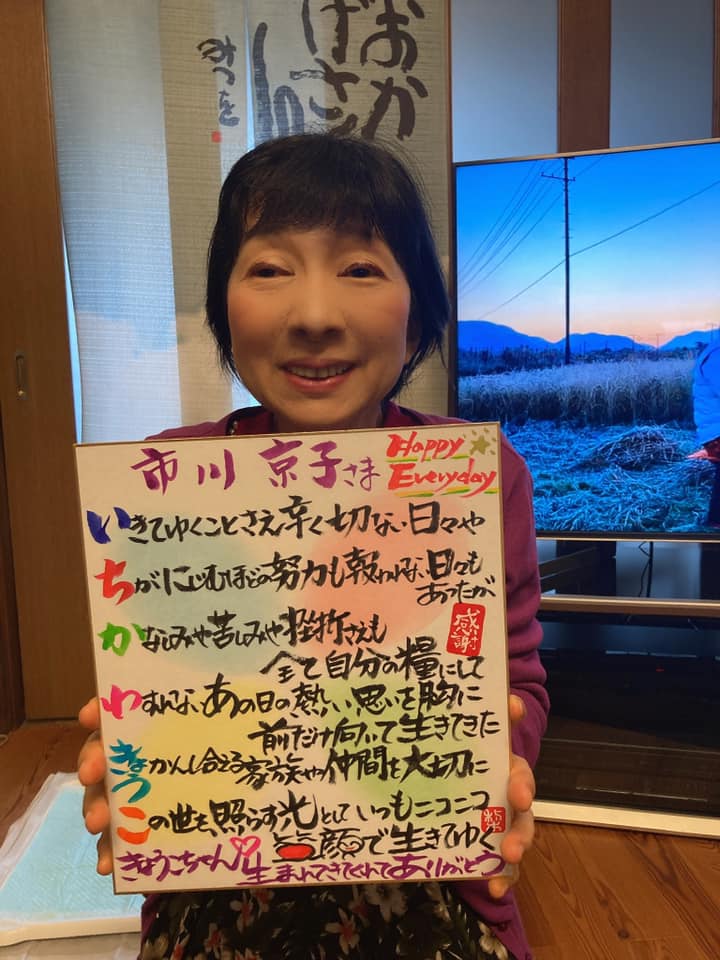 おかげさん
みつを
市川 京子さま
Happy
Everyday
いきてゆくことさえ辛く切ない日々や
ちがにじむほどの努力も報われない日々も
あったが
かなしみや苦しみや挫折さえも
感謝
全て自分の糧にして
わすれないあの日の熱い思いを胸に
前だけ向いて生きてきた
きょうかんし合える家族や仲間を大切に
この世を照らす光としていつもニコニコ
笑顔で生きてゆく
きょうこちゃん♡生まれてきてくれてありがとう